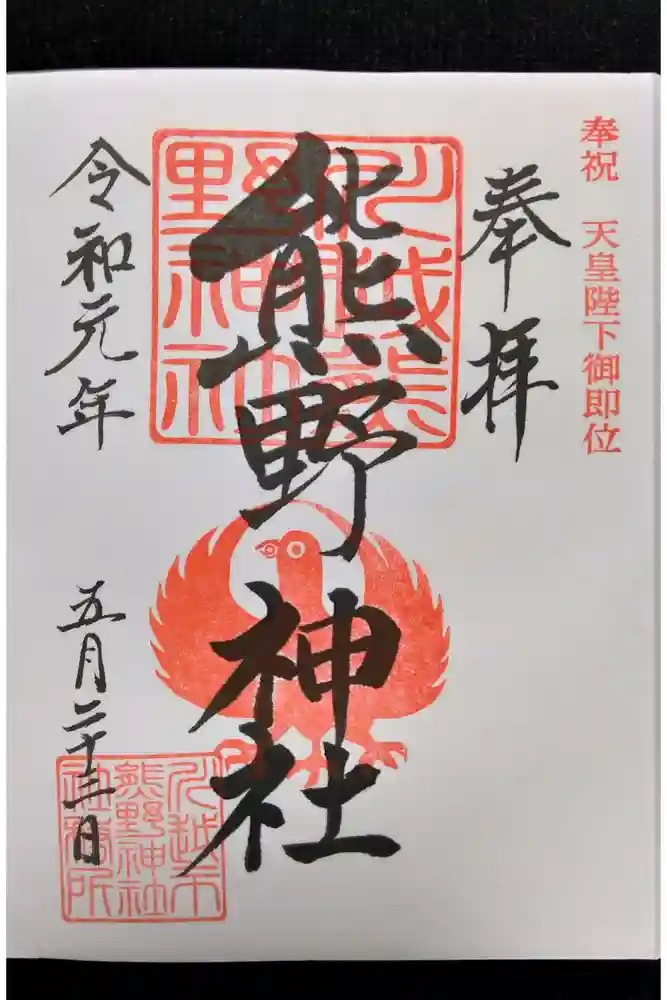 奉祝 天皇陛下御即位
奉拝
川越熊
野神社
熊野神社
令和元年
五月二十三日
川越市
熊野神社
社務所